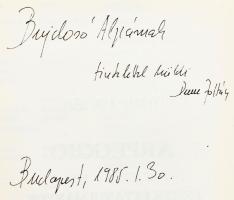 Bujdosó Alpárnak
tisztelettel küldi
Zoltán
Budapest, 1985. 1. 30.